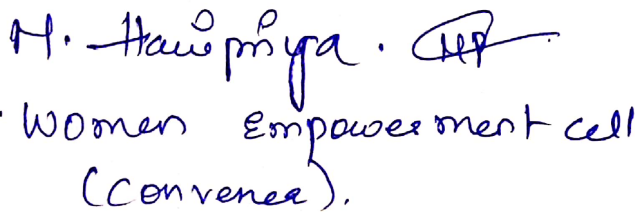 M. Haripriya.
Women Empowerment cell
(Convener).